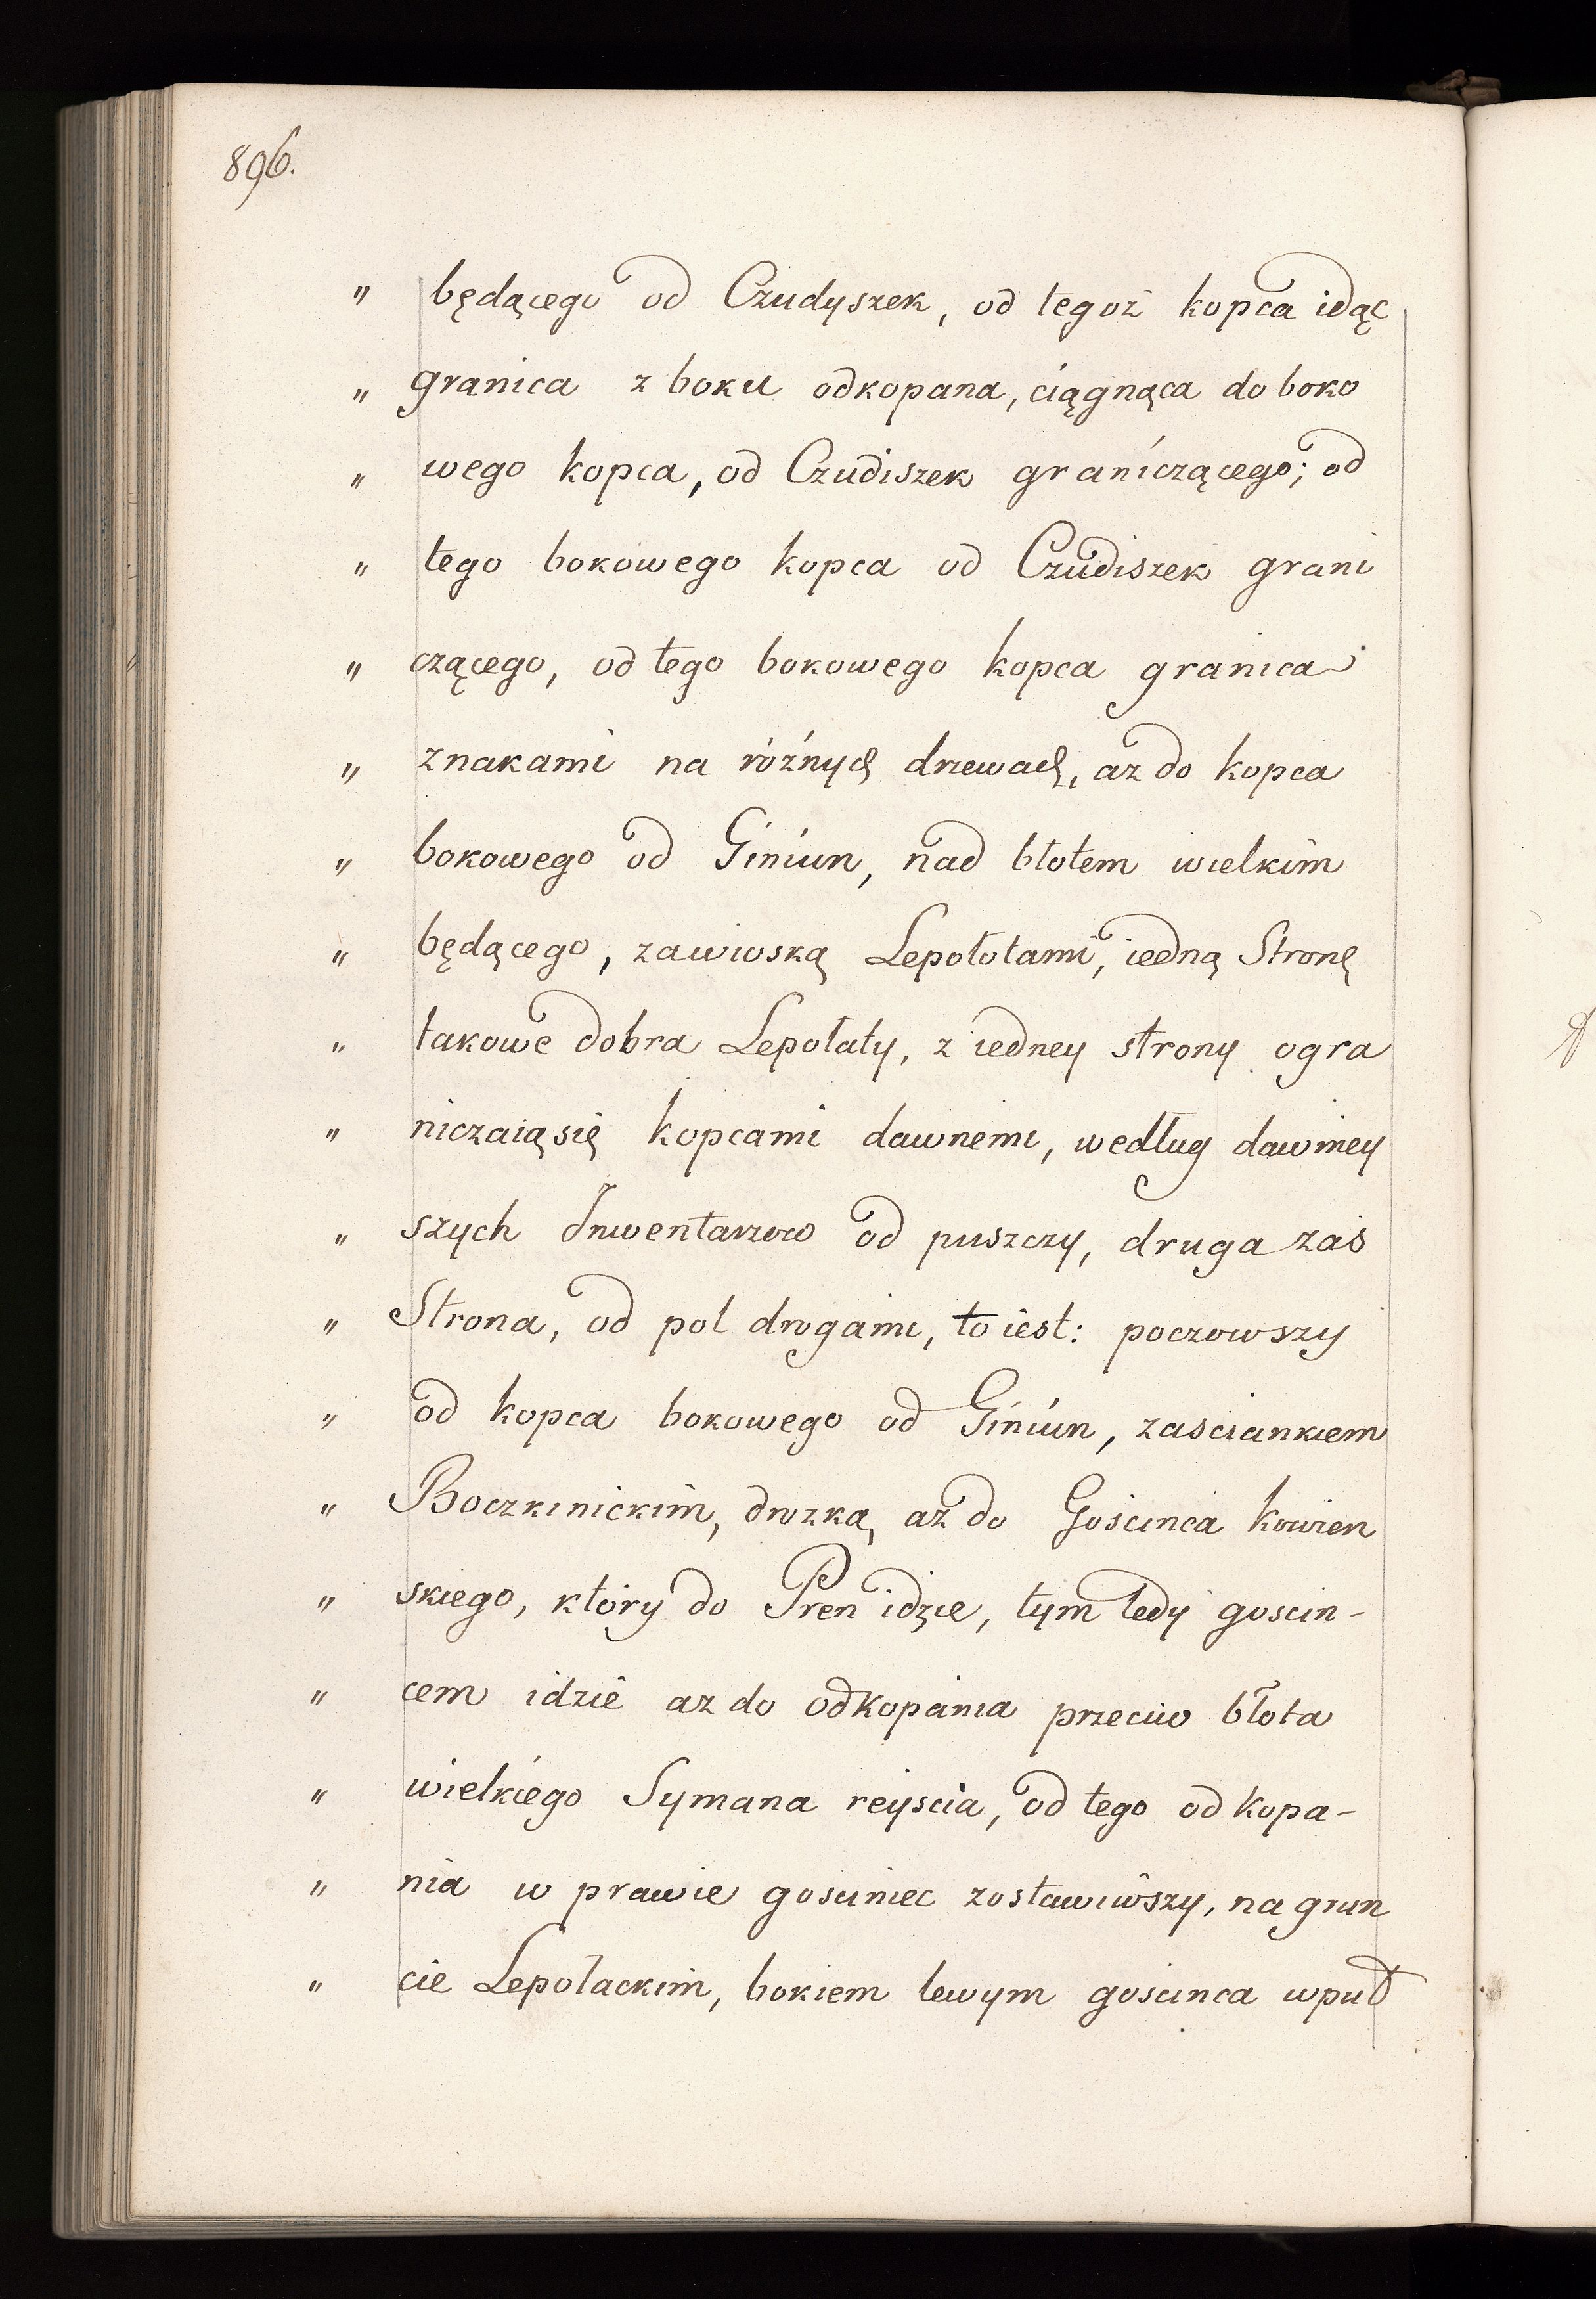 896.
" będącego od Czudyszek, od tegoż kopca idąc
" granica z boku odkopana, ciągnąca do boko
" wego kopca, od Czudiszek graniczącego; od
" tego bokowego kopca od Czudiszek grani
" czącego, od tego bokowego kopca granica
" znakami na różnych drzewach, aż do kopca
" bokowego od Giniun, nad błotem wielkim
" będącego, zawioską Lepołotami, iedną Stronę
" takowe dobra Lepołaty, z iedney strony ogra
" niczaią się kopcami dawnemi, według dawniey
" szych Inwentarzow od puszczy, druga zaś
" Strona, od pol drogami, to iest: poczowszy
" od kopca bokowego od Giniun, zasciankiem
" Boczkinickim, drozką aż do Goscinca kowien
" skiego, ktory do Pren idzie, tym tedy goscin-
" cem idzie az do odkopania przeciw błota
" wielkiego Symana reyscia, od tego odkopa-
" nia w prawie gosciniec zostawiwszy, na grun
" cie Lepolackim, bokiem lewym goscinca wpud